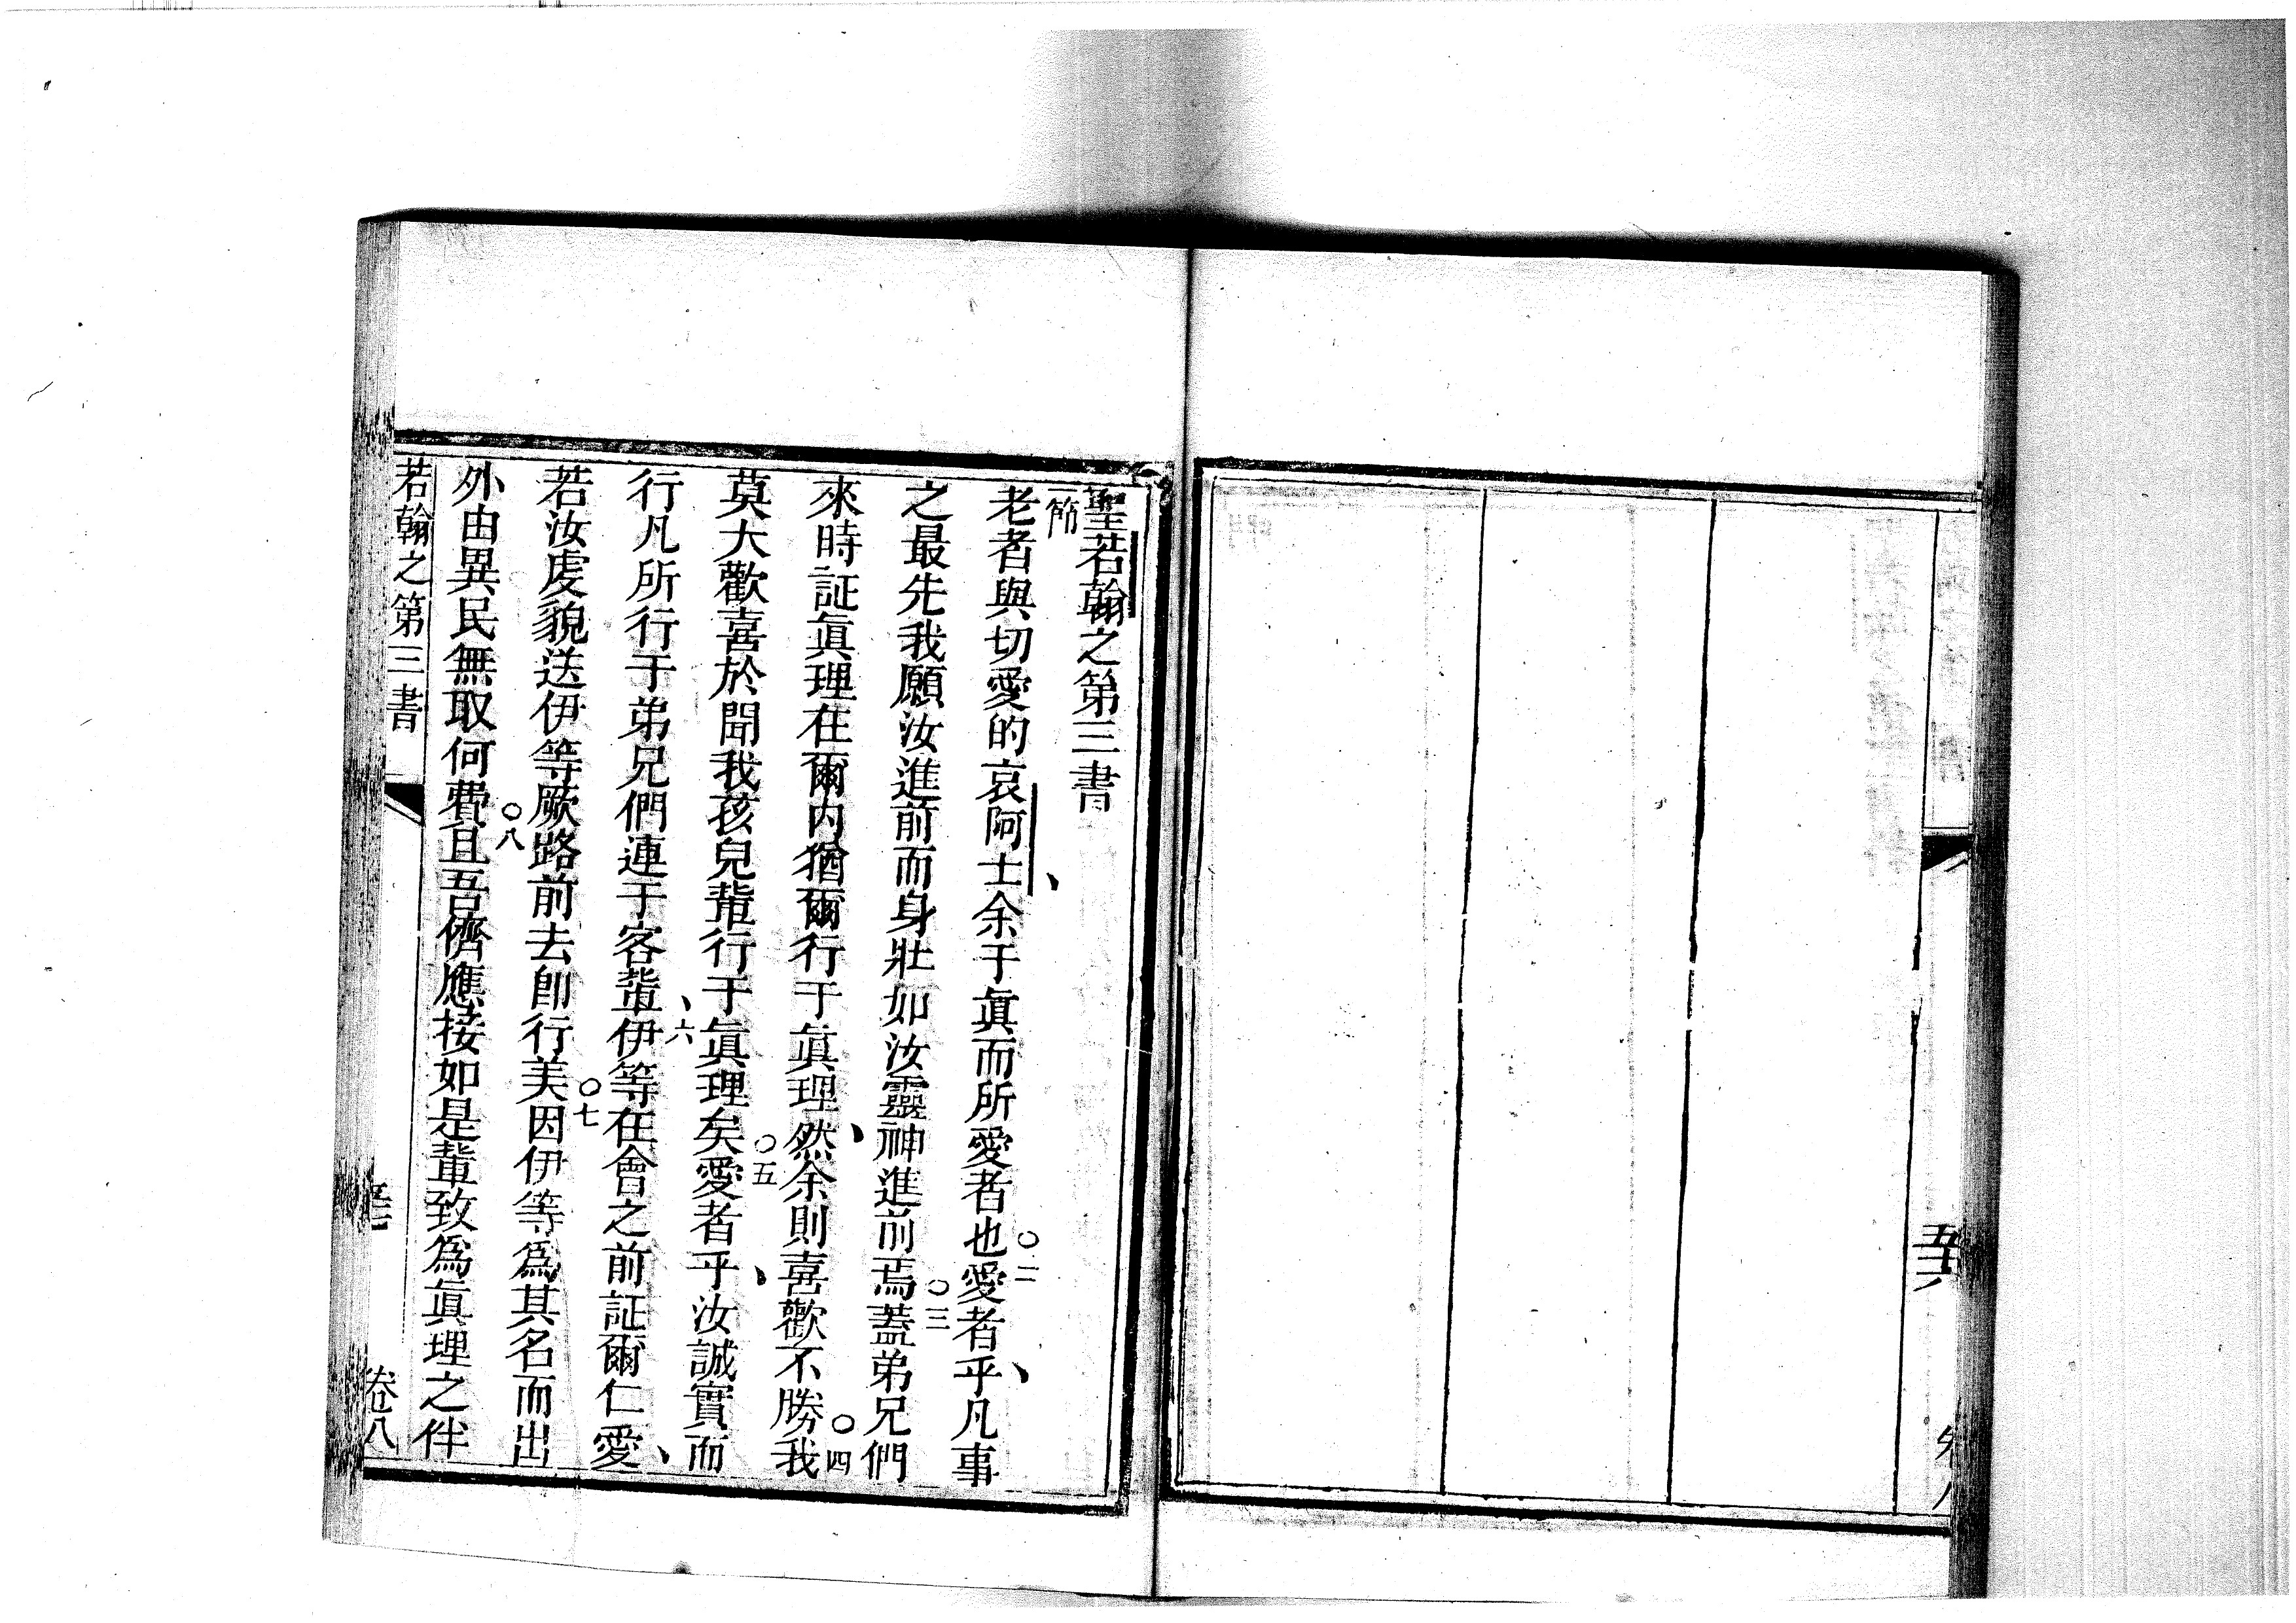 五十八
卷八
聖若翰之第三書
一節
老者與切愛的哀阿士、余于眞而所愛者也○二愛者乎、凡事
之最先我願汝進前而身壯如汝靈神進前焉○三蓋弟兄們
來時証眞理在爾內猶爾行于眞理、然余則喜歡不勝○四我
莫大歡喜於聞我孩兒輩行于眞理矣○五愛者乎、汝誠實而
行凡所行于弟兄們連于客輩、六伊等在會之前証爾仁愛、
若汝虔貌送伊等厥路前去卽行美○七因伊等爲其名而出
外由異民無取何費○八且吾儕應接如是輩致爲眞理之伴
若翰之第三書
卷八